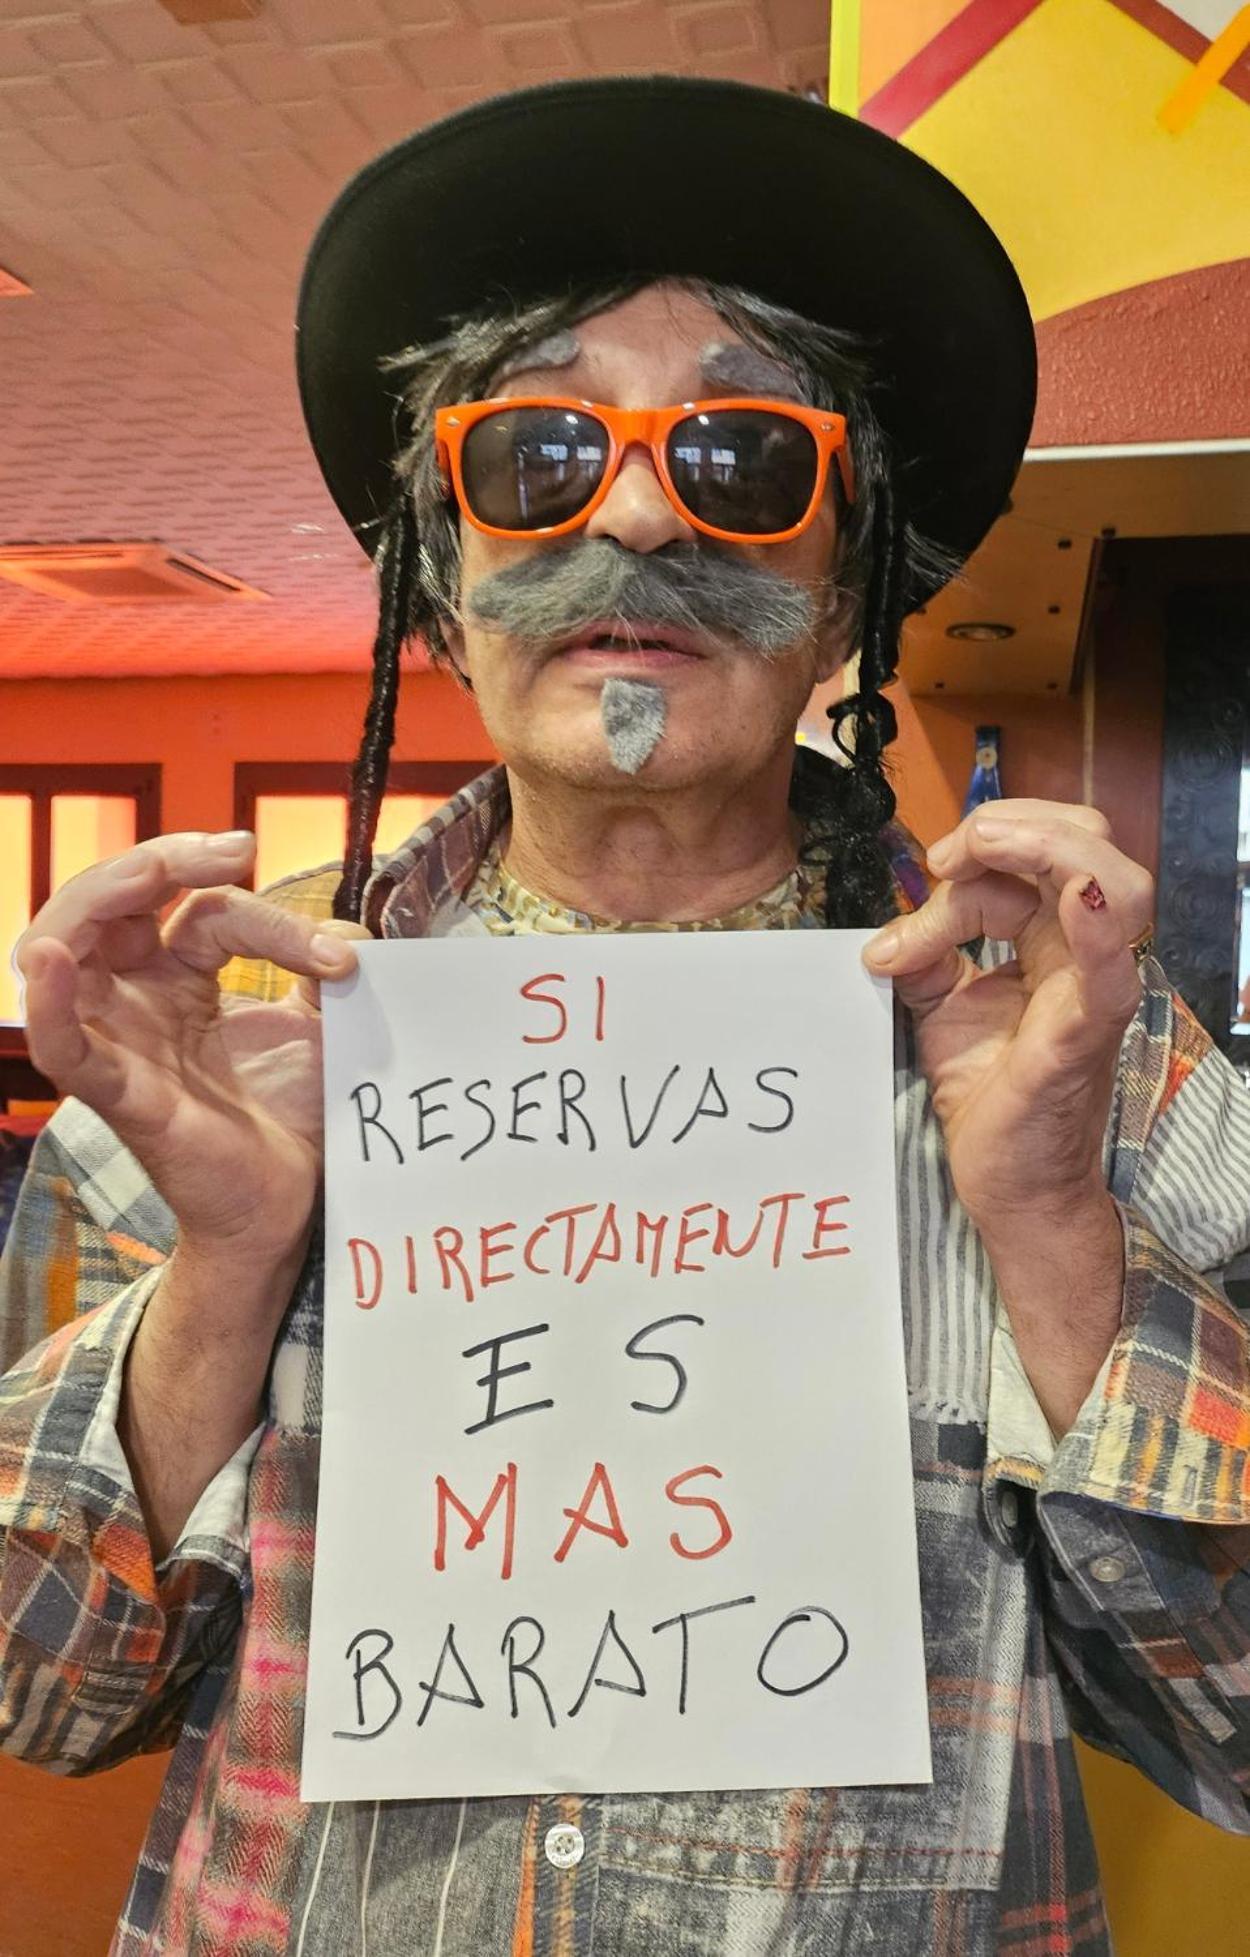 SI
RESERVAS
DIRECTAMENTE
ES
MAS
BARATO